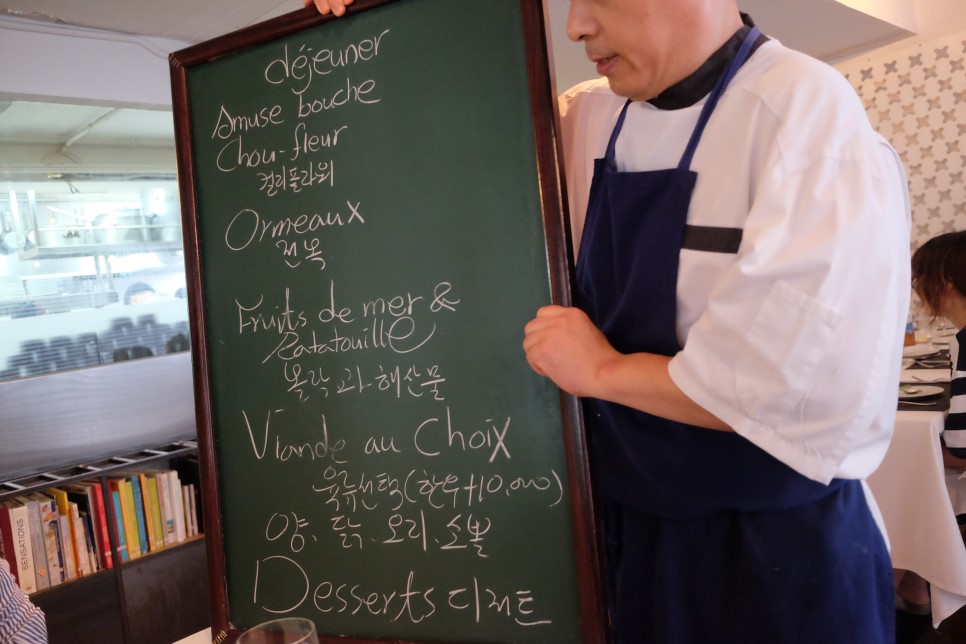 déjeuner
Amuse bouche
Chou-fleur
컬리플라워
Ormeaux
전복
Fruits de mer &
Ratatouille
볼락과 해산물
Viande au Choix
육류선택(한우+10,000)
양. 닭. 오리. 소볼
Desserts 디저트
SENSATIONS